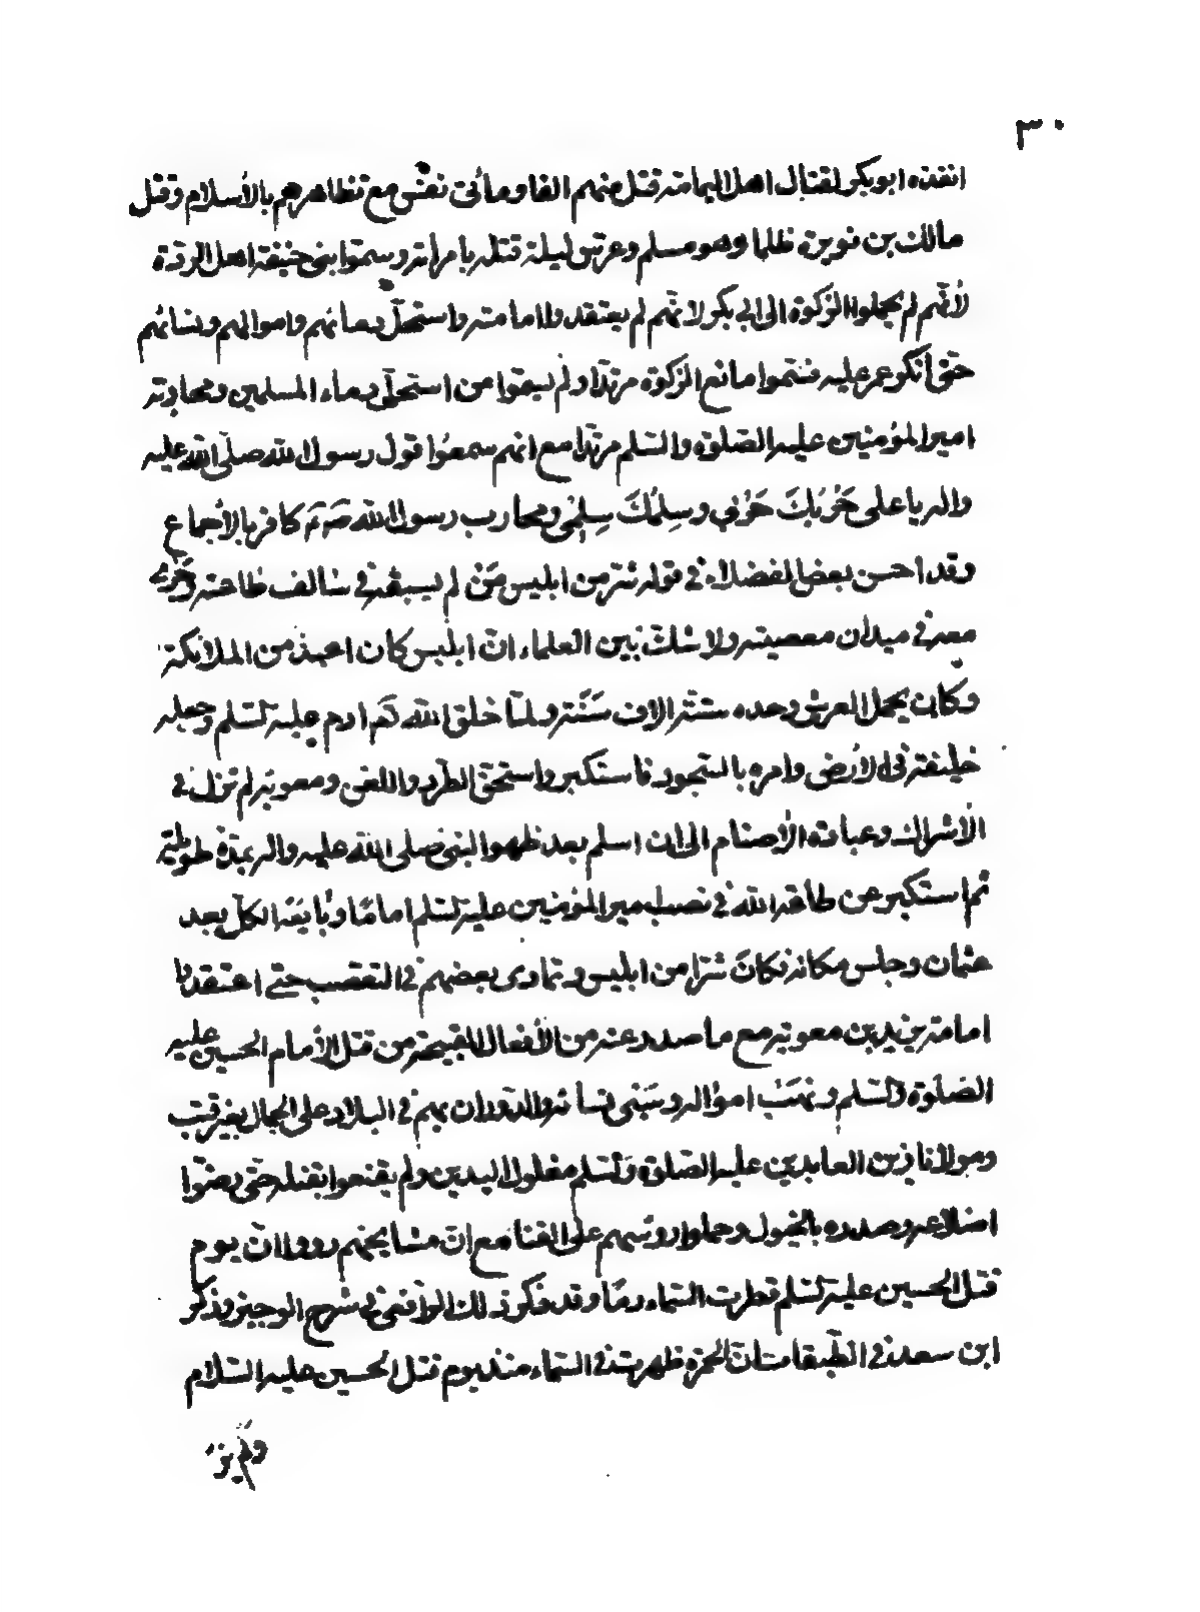 ٣٠
انفذه ابو بكر لقتال اهل اليمامة قتل منهم الفا ومأتى نفس مع تظاهرهم بالأسلام وقتل
مالك بن نويرة ظلما وهو مسلم وعرس ليلة قتله بامرأته وسمّوا بنى حنيفة اهل الردّة
لأنّهم لم يحملوا الزكوة الى ابي بكر لانّهم لم يعتقدوا امامته واستحلّ دمائهم واموالهم ونسائهم
حتى أنكر عمر عليه فسّموا مانع الزكوة مرتدّا ولم يسمّوا من استحلّ دماء المسلمين ومحاربة
امير المؤمنين عليه الصّلوة والسّلم مرتدّا مع انهم سمعُوا قول رسول الله صلّى الله عليه
واله يا على حَرْبُكَ حَرْبي وسِلمُكَ سِلْمى ومحارب رسول الله كافر بالأجماع
وقد احسن بعض الفضلاء في قوله شرّ من ابليس مَنْ لم يسبقه في سالف طاعته وجرى
معه في ميدان معصيته ولا شكّ بين العلماء انّ ابليس كان اعبد من الملائكة
وكان يحمل العرش وحده ستّة الاف سَنَة ولمّا خلق الله ادم عليه السّلم وجعله
خليفة في الأرض وامره بالسّجود فاستكبر واستحقّ الطّرد واللعن ومعوية لم تزل في
الأشراك وعبادة الأصنام الى ان اسلم بعد ظهور النبى صلى الله عليه واله بمدّة طويلة
ثم استكبر عن طاعة الله في نصب امير المؤمنين عليه السّلم امامًا وبايعَهُ الكلّ بعد
عثمان وجلس مكانه فكانَ شرّا من ابليس وتمادى بعضهم في التعصّب حتى اعتقد
امامة يزيد بن معوية مع ما صدر عنه من الأفعال القبيحة من قتل الأمام الحسين عليه
الصّلوة والسّلم ونهَب امواله وسَبْى نسائه والدّوران بهم في البلاد على الجمال بغير قتب
ومولانا زين العابدين عليه الصّلوة والسّلم مغلول اليدين ولم يقنعوا بقتله حتى رضّوا
اضلاعه وصدره بالخيول وحملوا رؤسهم على القنا مع انّ مشايخهم رووا انّ يوم
قتل الحسين عليه السّلم قطرت السّماء دمًا وقد ذكر ذلك الرّافعى في شرح الوجيز وذكر
ابن سعد في الطّبقات انّ الحمرة ظهرت في السّماء منذ يوم قتل الحسين عليه السّلام
ولم